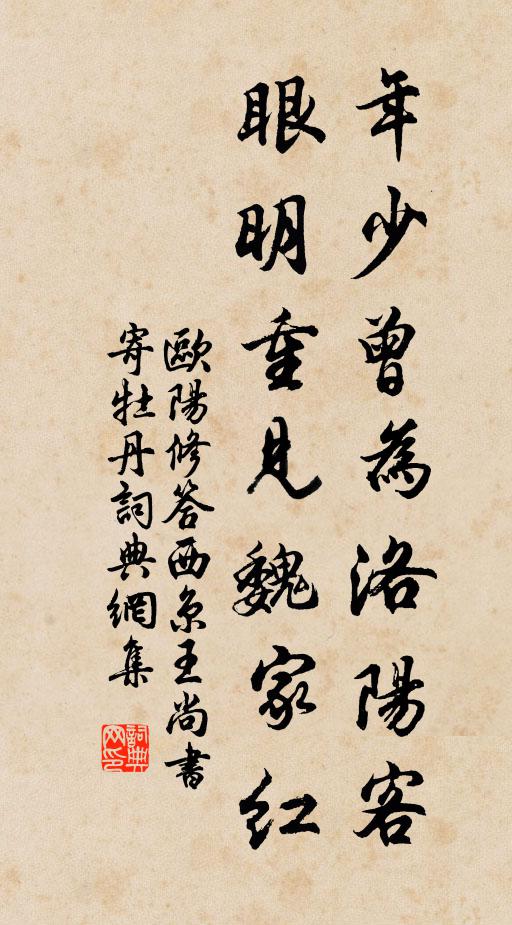 年少曾為洛陽客
眼明重見魏家紅
歐陽修答西京王尚書
寄牡丹詞典網集
詞典
网印